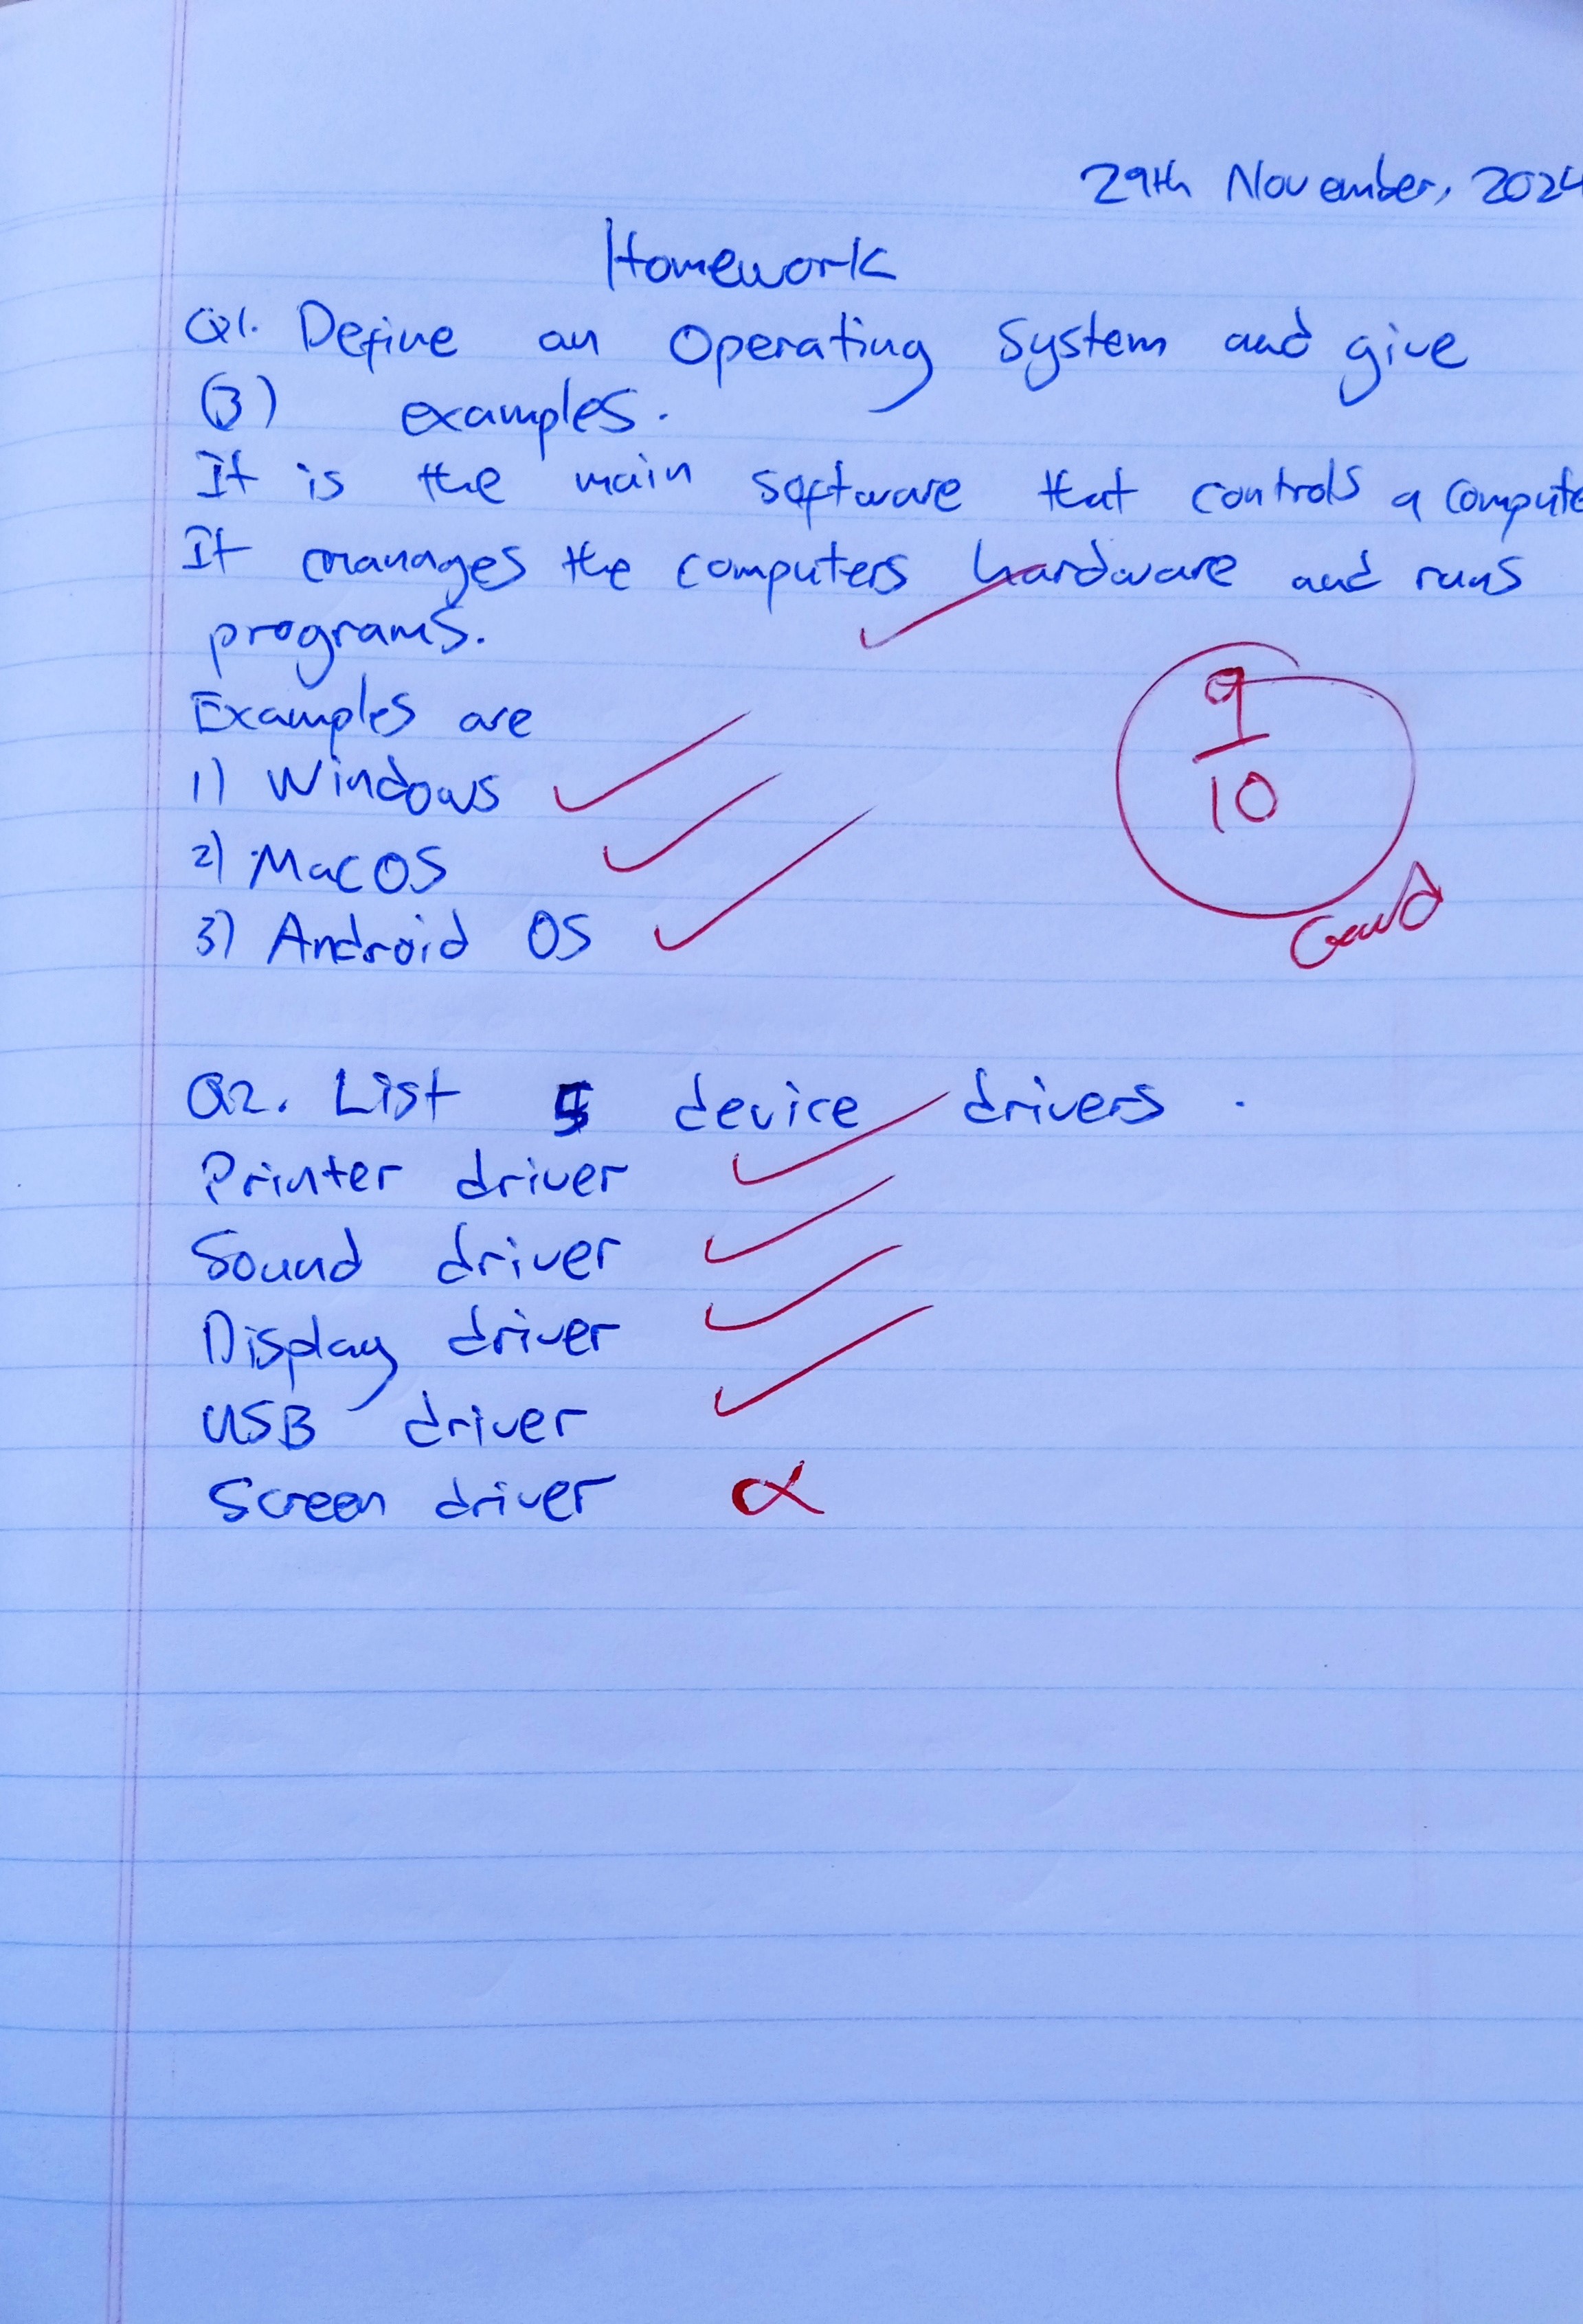 29th November, 2024
Homework
Q1. Define an Operating System and give
(3) examples.
It is the main software that controls a compute
It manages the computers hardware and runs
programs.
Examples are
1) Windows
2) MacOS
3) Android OS
9
10
Good
Q2. List 5 device drivers.
Printer driver
Sound driver
Display driver
USB driver
Screen driver